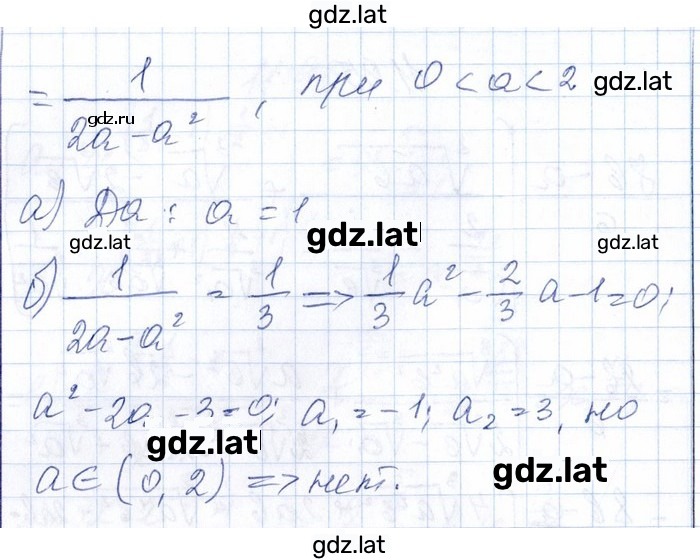 gdz.lat
= 1/(2a - a²), при 0 < a < 2 gdz.lat
gdz.ru
а) Да: a = 1
gdz.lat gdz.lat gdz.lat
б) 1/(2a - a²) = 1/3 => 1/3 a² - 2/3 a - 1 = 0;
a² - 2a - 3 = 0; a₁ = -1; a₂ = 3, но
gdz.lat gdz.lat
a ∈ (0, 2) => нет.
gdz.lat